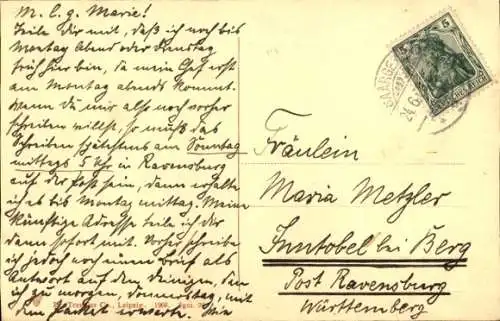 M. l. g. Marie!
Teile Dir mit, daß ich noch bis
Montag Abend oder Dienstag
früh hier bin, da mein Chef erst
am Montag abends kommt.
Wenn Du mir also noch vorher
schreiben willst, so muß das
Schreiben spätestens am Sonntag
mittags 5 Uhr in Ravensburg
auf der Post sein, dann erhalte
ich es bis Montag mittag. Meine
künftige Adresse teile ich Dir
dann sofort mit. Vorher schreibe
ich jedoch noch einen Brief als
Antwort auf den Deinigen, den
ich morgen, Donnerstag, mit
dem Paket erwarte.
Trenkler Co., Leipzig. 1908.
5
24.6.
Fräulein
Maria Metzler
Inntobel bei Berg
Post Ravensburg
Württemberg